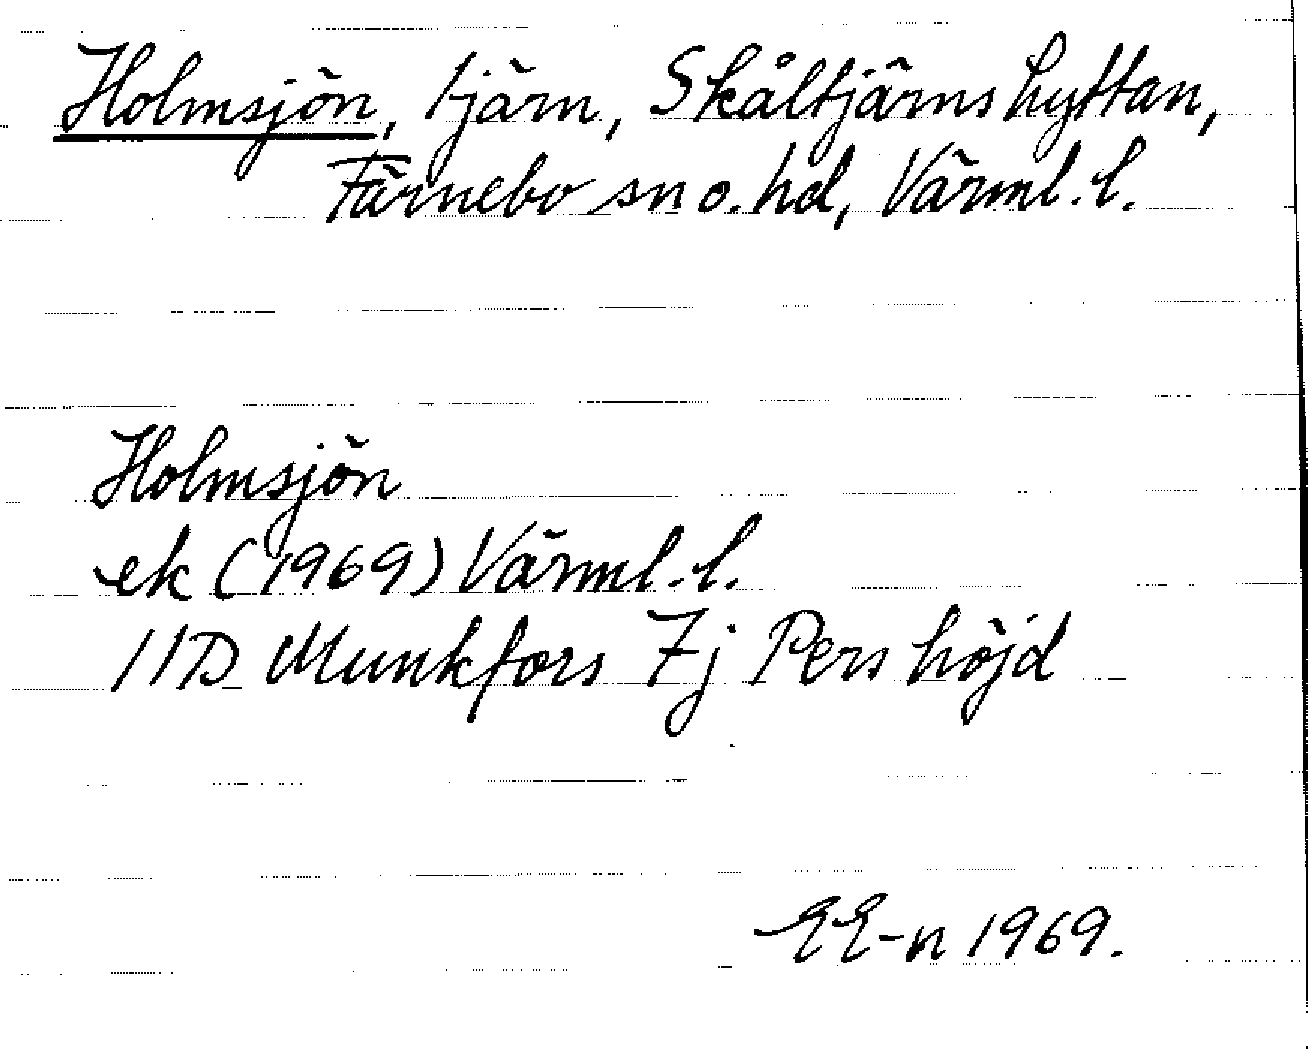 Holmsjön, tjärn, Skåltjärnshyttan,
Färnebo sn o. hd, Värml. l.
Holmsjön
ek (1969) Värml. l.
11D Munkfors 7j Pers höjd
EE-n 1969.